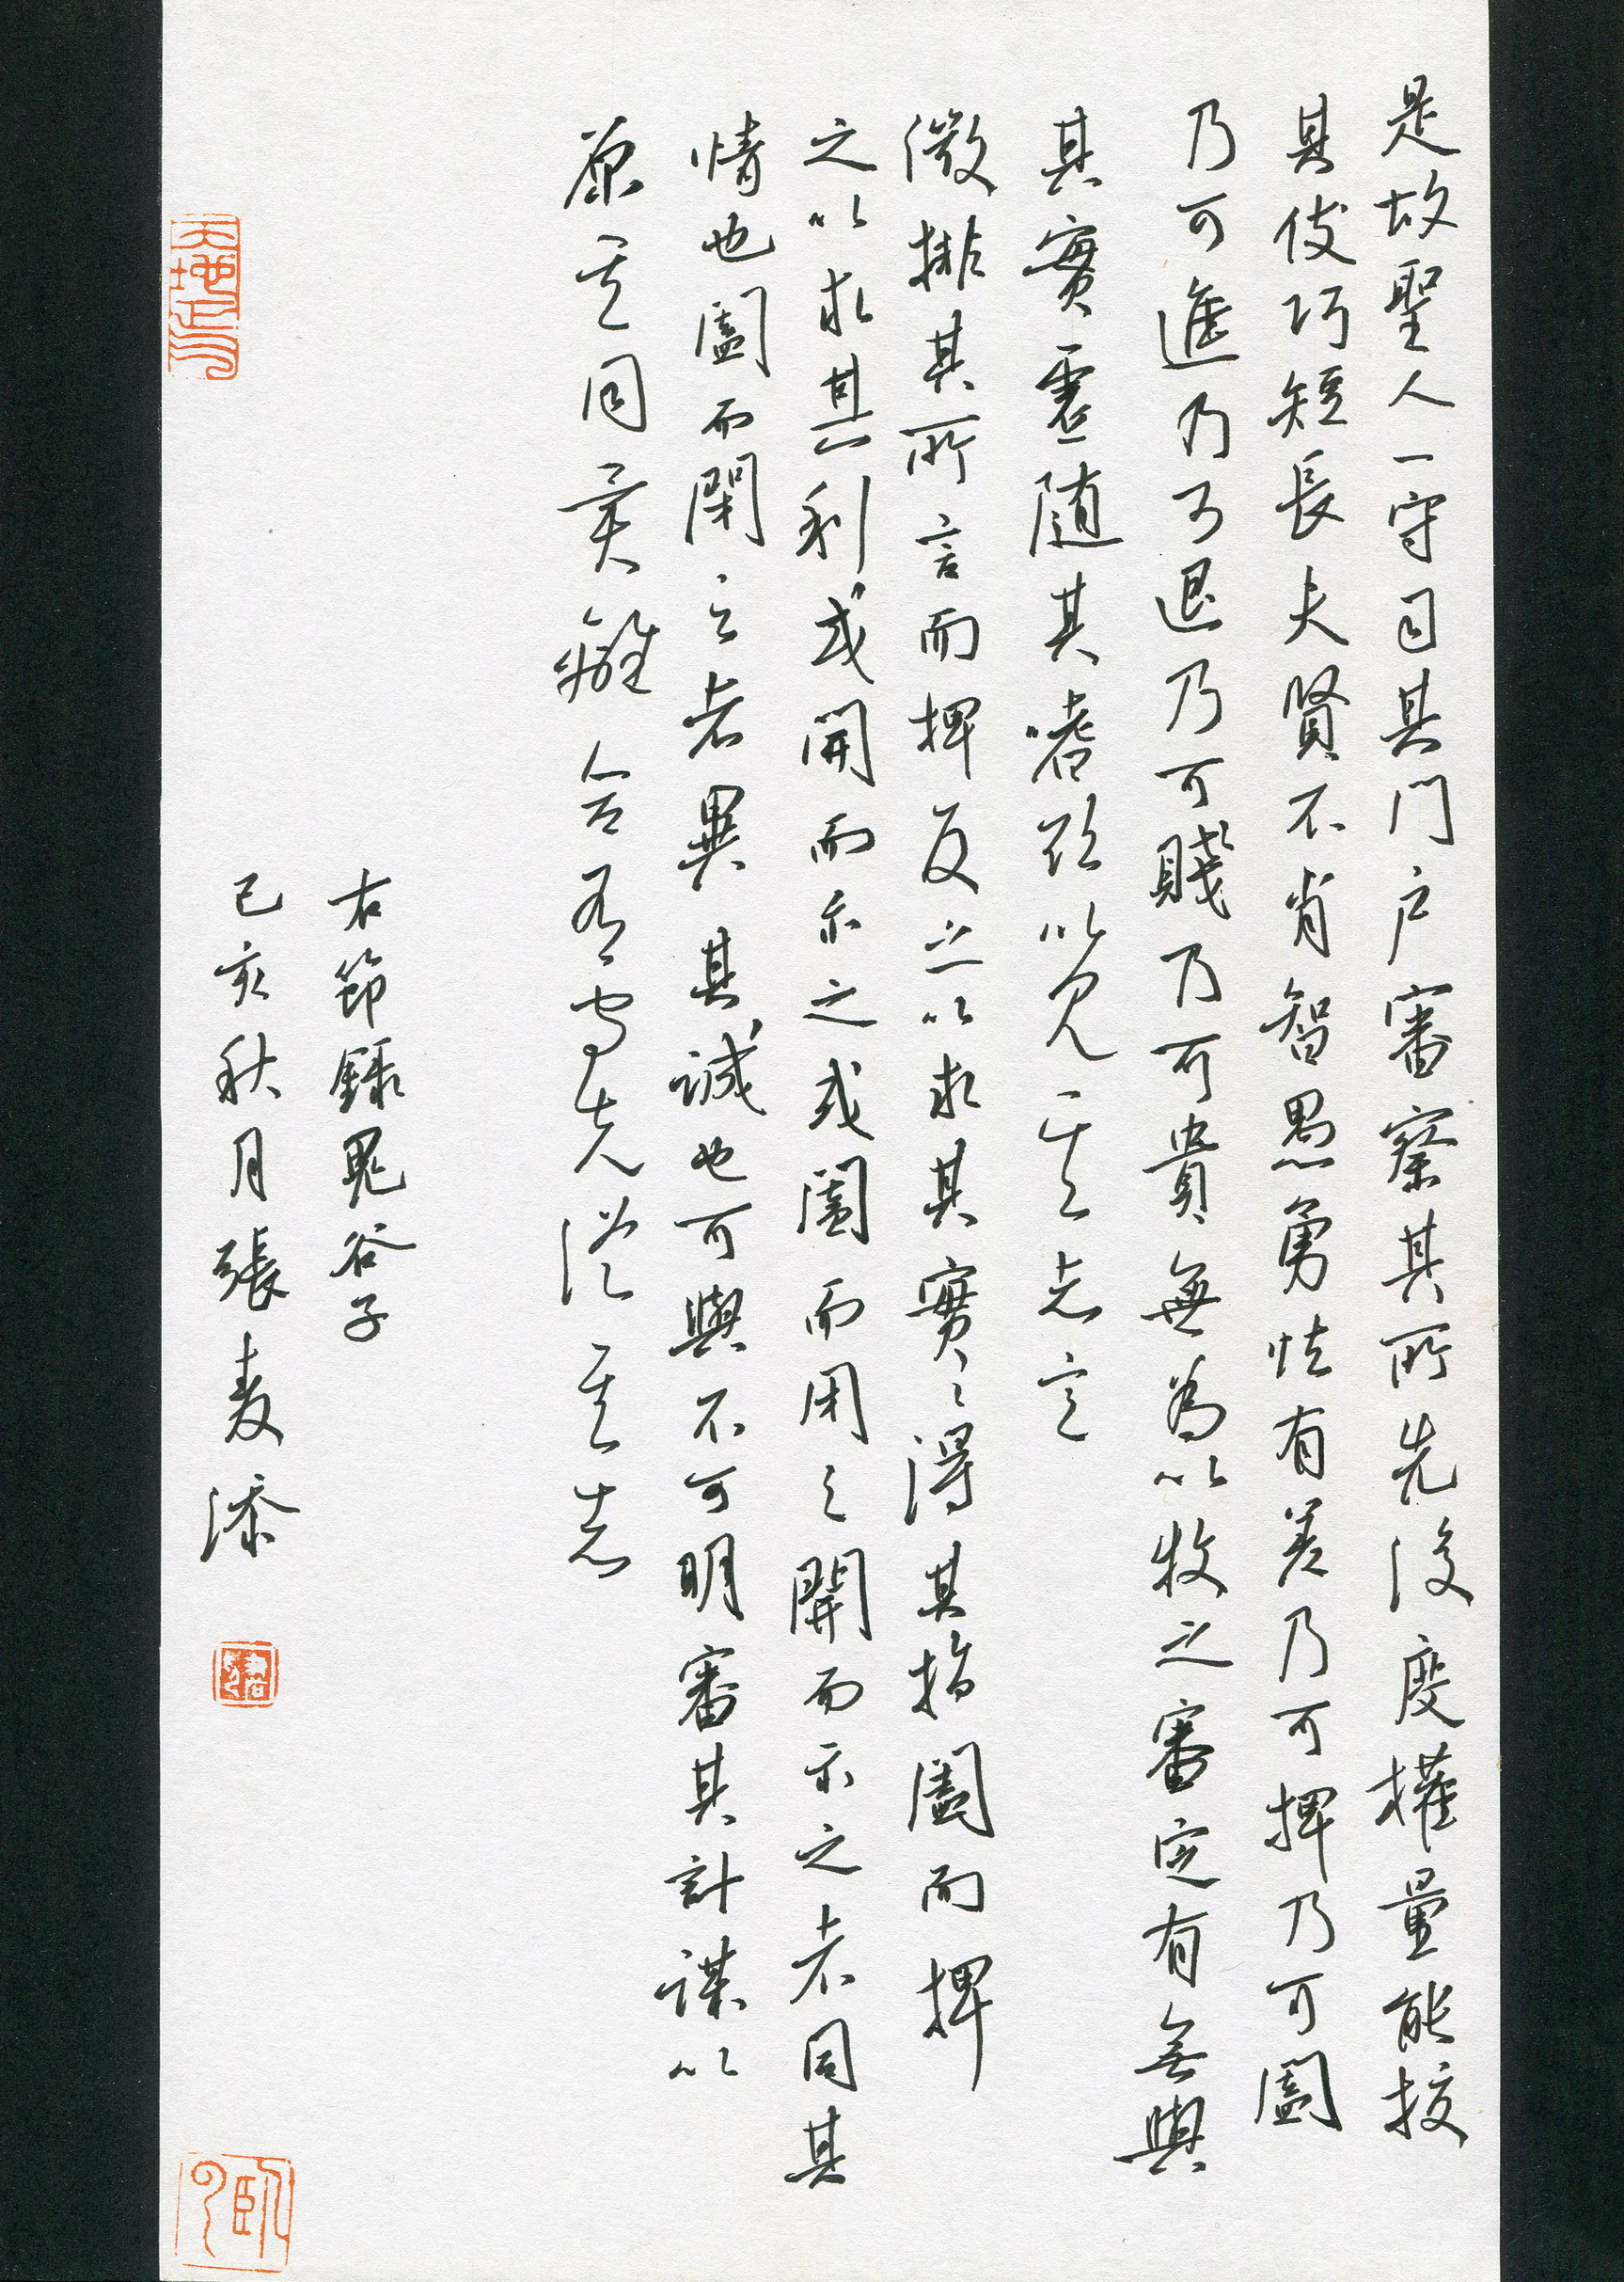 是故聖人一守司其門户審察其所先後度權量能挍
其伎巧短長夫賢不肖智愚勇怯有差乃可捭乃可闔
乃可進乃可退乃可賤乃可貴無為以牧之審定有無與
其實虛隨其嗜欲以見其志意
微排其所言而捭反之以求其實實得其指闔而捭
之以求其利或開而示之或闔而閉之開而示之者同其
情也闔而閉之者異其誠也可與不可明審其計謀以
原其同異離合有守先從其志
右節錄鬼谷子
己亥秋月張麦添